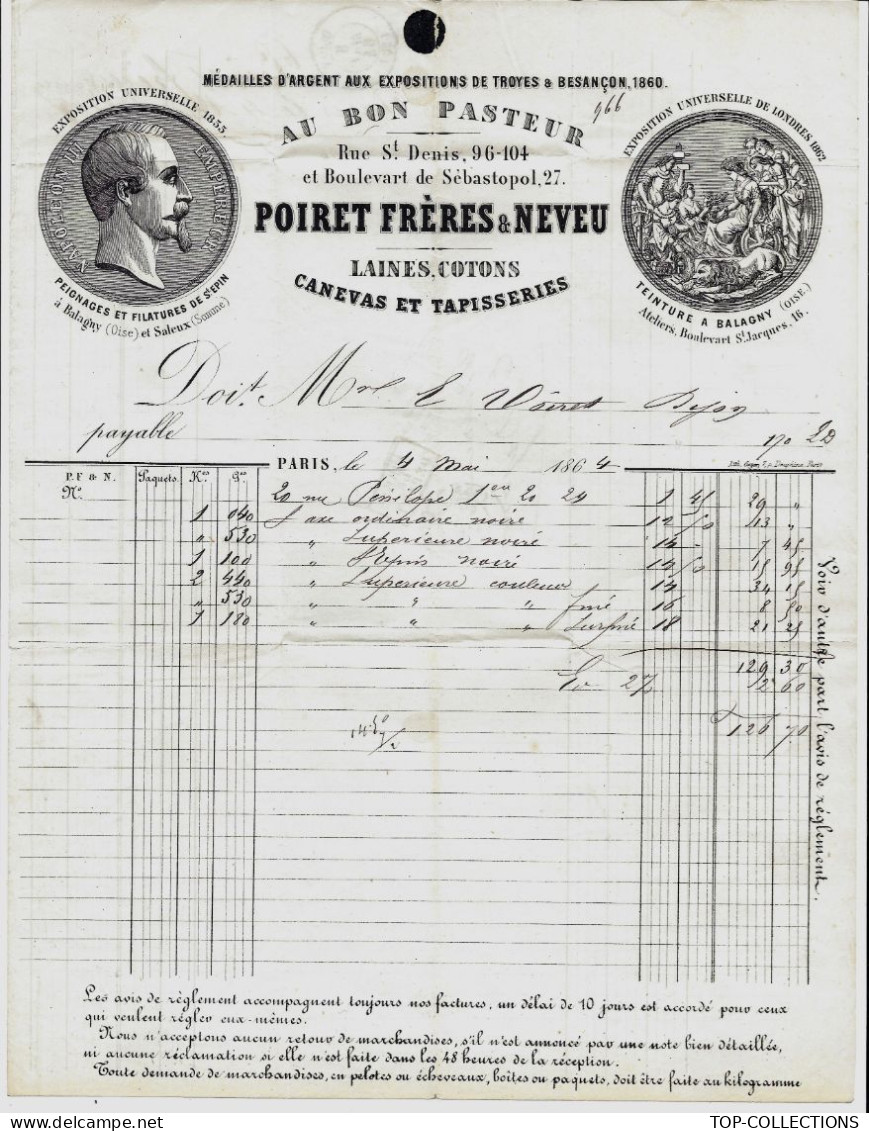 MÉDAILLES D'ARGENT AUX EXPOSITIONS DE TROYES & BESANÇON, 1860.
966
AU BON PASTEUR
Rue St Denis, 96-104
et Boulevart de Sébastopol, 27.
POIRET FRÈRES & NEVEU
LAINES, COTONS
CANEVAS ET TAPISSERIES
EXPOSITION UNIVERSELLE 1855
NAPOLEON III EMPEREUR
PEIGNAGES ET FILATURES DE ST EPIN
à Balagny (Oise) et Saleux (Somme)
EXPOSITION UNIVERSELLE DE LONDRES 1862
TEINTURE A BALAGNY (OISE.)
Ateliers, Boulevart St Jacques, 16.
Doit Mme E Dijon
payable 170
PARIS, le 4 Mai 1864
P. F & N. Paquets. Kos Gr.
No
20 ne Pénélope 1en 20 24 1 45 29 "
1 040 ordinaire noire 12 50 13 "
" 530 " Superieure noire 14 - 7 45
1 100 " St Epin noire 14 50 15 95
2 440 " Superieure couleur 14 34 15
" 530 " " " finé 16 8 50
1 180 " " " Surfine 18 21 25
129 30
2% 2 60
126 70
Voir d'autre part, l'avis de réglement.
Les avis de règlement accompagnent toujours nos factures, un délai de 10 jours est accordé pour ceux
qui veulent régler eux-mêmes.
Nous n'acceptons aucun retour de marchandises, s'il n'est annoncé par une note bien détaillée,
ni aucune réclamation si elle n'est faite dans les 48 heures de la réception.
Toute demande de marchandises, en pelotes ou écheveaux, boîtes ou paquets, doit être faite au kilogramme
TOP-COLLECTIONS